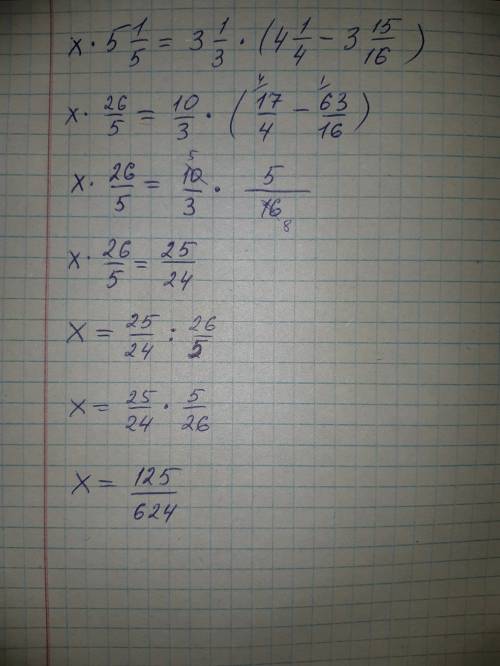 x · 5 1/5 = 3 1/3 · (4 1/4 − 3 15/16)
x · 26/5 = 10/3 · (⁴17/4 − ¹63/16)
x · 26/5 = ⁵10/3 · 5/16₈
x · 26/5 = 25/24
x = 25/24 : 26/5
x = 25/24 · 5/26
x = 125/624